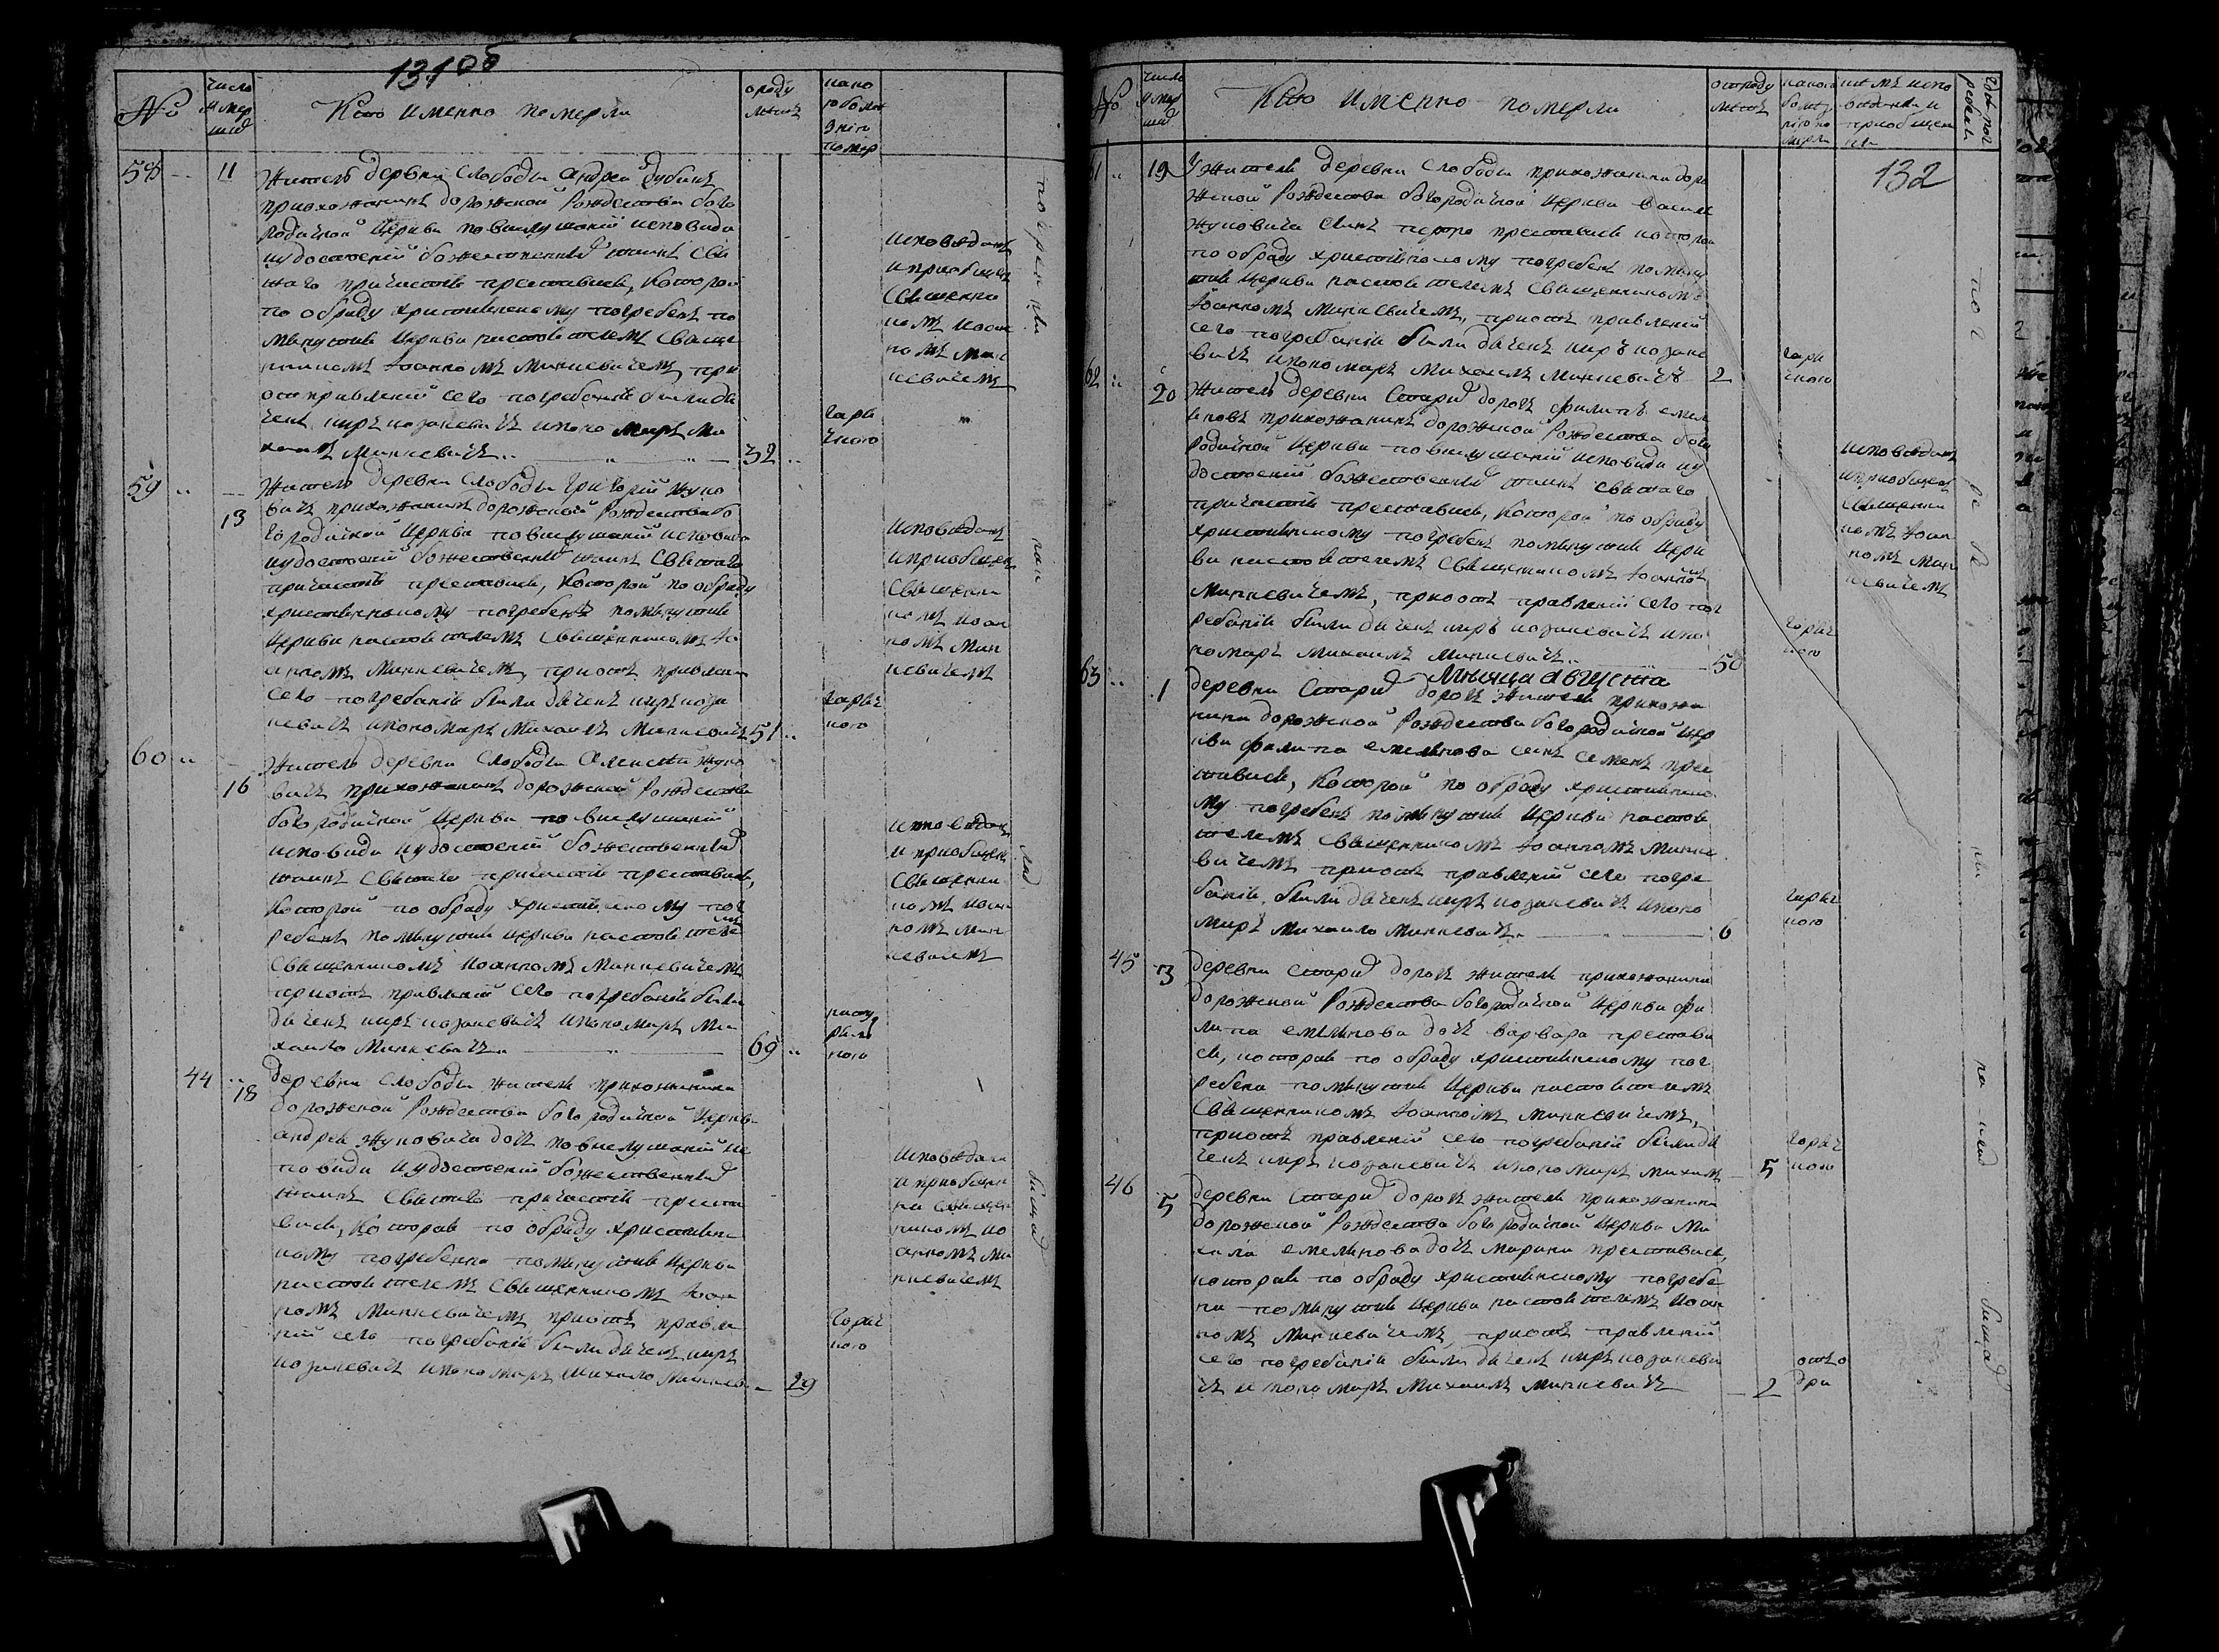 131об
№
число
умер
ших
Кто именно померли
от роду
летъ
како
ю боле
знію
помер
58
11
Житель деревни Слободы Андрей Дубикъ
прихожанинъ дорожской Рождества бого
родичной церкви по выслушаніи исповеди
и удостоеніи божественныхъ таинъ свя
таго причастія преставися, которой
по обряду християнскому погребенъ по
мянутыя церкви настоятелемъ свяще
нникомъ Іоанномъ Минкевичемъ, при
отправленіи сего погребенія были дя
чекъ киръ козакевичъ и поно маръ Ми
хаилъ Минкевичъ
32
горя
чкою
исповеданъ
и приобщенъ
священни
комъ Иоан
номъ Мин
кевичемъ
59
13
Житель деревни Слободы Григорій Жуко
вичъ прихожанинъ дорожской Рождества бо
городичной церкви по выслушаніи исповеди
и удостоеніи божественныхъ таинъ святаго
причастія преставися, которой по обряду
християнскому погребенъ помянутыя
церкви настоятелемъ священникомъ Іо
анномъ Минкевичемъ, при отъ правлении
сего погребанія были дячекъ киръ коза
кевичъ и пономаръ Михаилъ Минкевичъ
51
горяч
кою
исповеданъ
и приобщенъ
священни
комъ Иоан
номъ Мин
кевичемъ
60
16
Житель деревни Слободы Алексей Жуко
вичъ прихожанинъ дорожской Рождества
богородичной церкви по выслушаніи
исповеди и удостоеніи божественныхъ
таинъ святаго причастія преставися,
которой по обряду християнскому пог
ребенъ помянутыя церкви настоятеле
мъ
священникомъ Иоанномъ Минкевичемъ
при отъ правленіи сего погребанія были
дячекъ киръ козакевичъ и пономаръ Ми
хаило Минкевичъ
69
нату
раль
ною
исповеданъ
и приобщенъ
священни
комъ Иоан
номъ Мин
кевичемъ
44
18
деревни Слободы жителя прихожанина
дорожской Рождества богородичной церкви
андрея Жуковича дочь по выслушаніи ис
поведи и удостоеніи божественныхъ
таинъ святаго причастія преста
вися, которая по обряду християнс
кому погребенна помянутыя церкви
настоятелемъ священникомъ Іоан
номъ Минкевичемъ при отъ правле
ніи сего погребанія были дячекъ киръ
козакевичъ и пономаръ Михаило Минкев
29
горяч
кою
исповедана
и приобщен
на священ
никомъ Ио
анномъ Ми
нкевичемъ
погребени
на
клад
бищах
№
число
умер
ших
Кто именно померли
от роду
летъ
какою
болез
нію по
мерли
кемъ испо
веданы и
приобщен
ны
где пог
ребены
132
61
19
У жителя деревни Слободы прихожанина доро
жской Рождества богородичной церкви Василя
Жуковича сынъ Петро преставися которой
по обряду християнскому погребенъ помяну
тыя церкви настоятелемъ священникомъ
Іоанномъ Минкевичемъ, при отъ правленіи
сего погребанія были дячекъ киръ козаке
вичъ и пономаръ Михаилъ Минкевичъ
2
горя
чкою
62
20
Житель деревни Старыхъ дорогъ филипъ емел
яновъ прихожанинъ дорожской Рождества бого
родичной церкви по выслушаніи исповеди и у
достоеніи божественныхъ таинъ святаго
причастія преставися, которой по обряду
християнскому погребенъ помянутыя церк
ви настоятелемъ священникомъ Іоанномъ
Минкевичемъ, при отъ правленіи сего пог
ребанія были дячекъ киръ козакевичъ и по
номаръ Михаилъ Минкевичъ
50
горяч
кою
исповеданъ
и приобщенъ
священни
комъ Іоан
номъ Мин
кевичемъ
Месяца августа
63
1
деревни Старыхъ дорогъ жителя прихожа
нина дорожской Рождества богородичной цер
кви филипа емелянова сынъ Семенъ прес
тавися, которой по обряду християнско
му погребенъ помянутыя церкви настоя
телемъ священникомъ Іоанномъ Минке
вичемъ при отъ правленіи сего погре
банія были дячекъ киръ козакевичъ и поно
маръ Михаило Минкевичъ
6
горяч
кою
45
3
деревни Старыхъ дорогъ жителя прихожанина
дорожской Рождества богородичной церкви фи
липа емелянова дочъ варвара престави
ся, которая по обряду християнскому пог
ребена помянутыя церкви настоятелемъ
священникомъ Іоанномъ Минкевичемъ,
при отъ правленіи сего погребаніи были дя
чекъ киръ козакевичъ и пономаръ михаилъ
5
горяч
кою
46
5
деревни Старыхъ дорогъ жителя прихожанина
дорожской Рождества богородичной церкви Ми
хаила емелянова дочъ Марина преставися,
которая по обряду християнскому погребе
на помянутыя церкви настоятелемъ Иоан
номъ Минкевичемъ, при отъ правленіи
сего погребанія были дячекъ киръ козакеви
чъ и пономаръ Михаилъ Минкевичъ
2
погребени
на клад
бищах